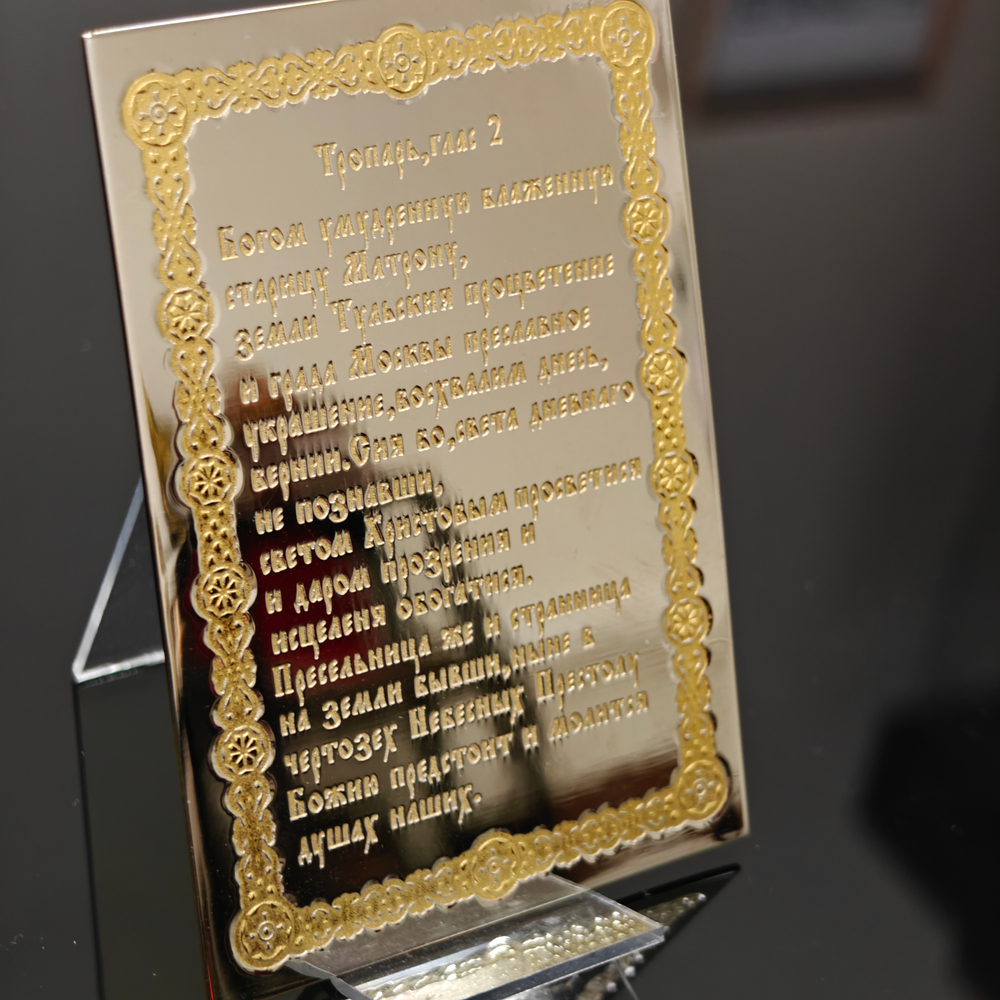 Тропарь,глас 2
Богом умудренную блаженную
старицу Матрону,
земли Тульския процветение
и града Москвы преславное
украшение,восхвалим днесь,
вернии.Сия бо,света дневнаго
не познавши,
светом Христовым просветися
и даром прозрения и
исцеленя обогатися.
Пресельница же и странница
на земли бывши,ныне в
чертозех Небесных Престолу
Божию предстоит и молится
душах наших.